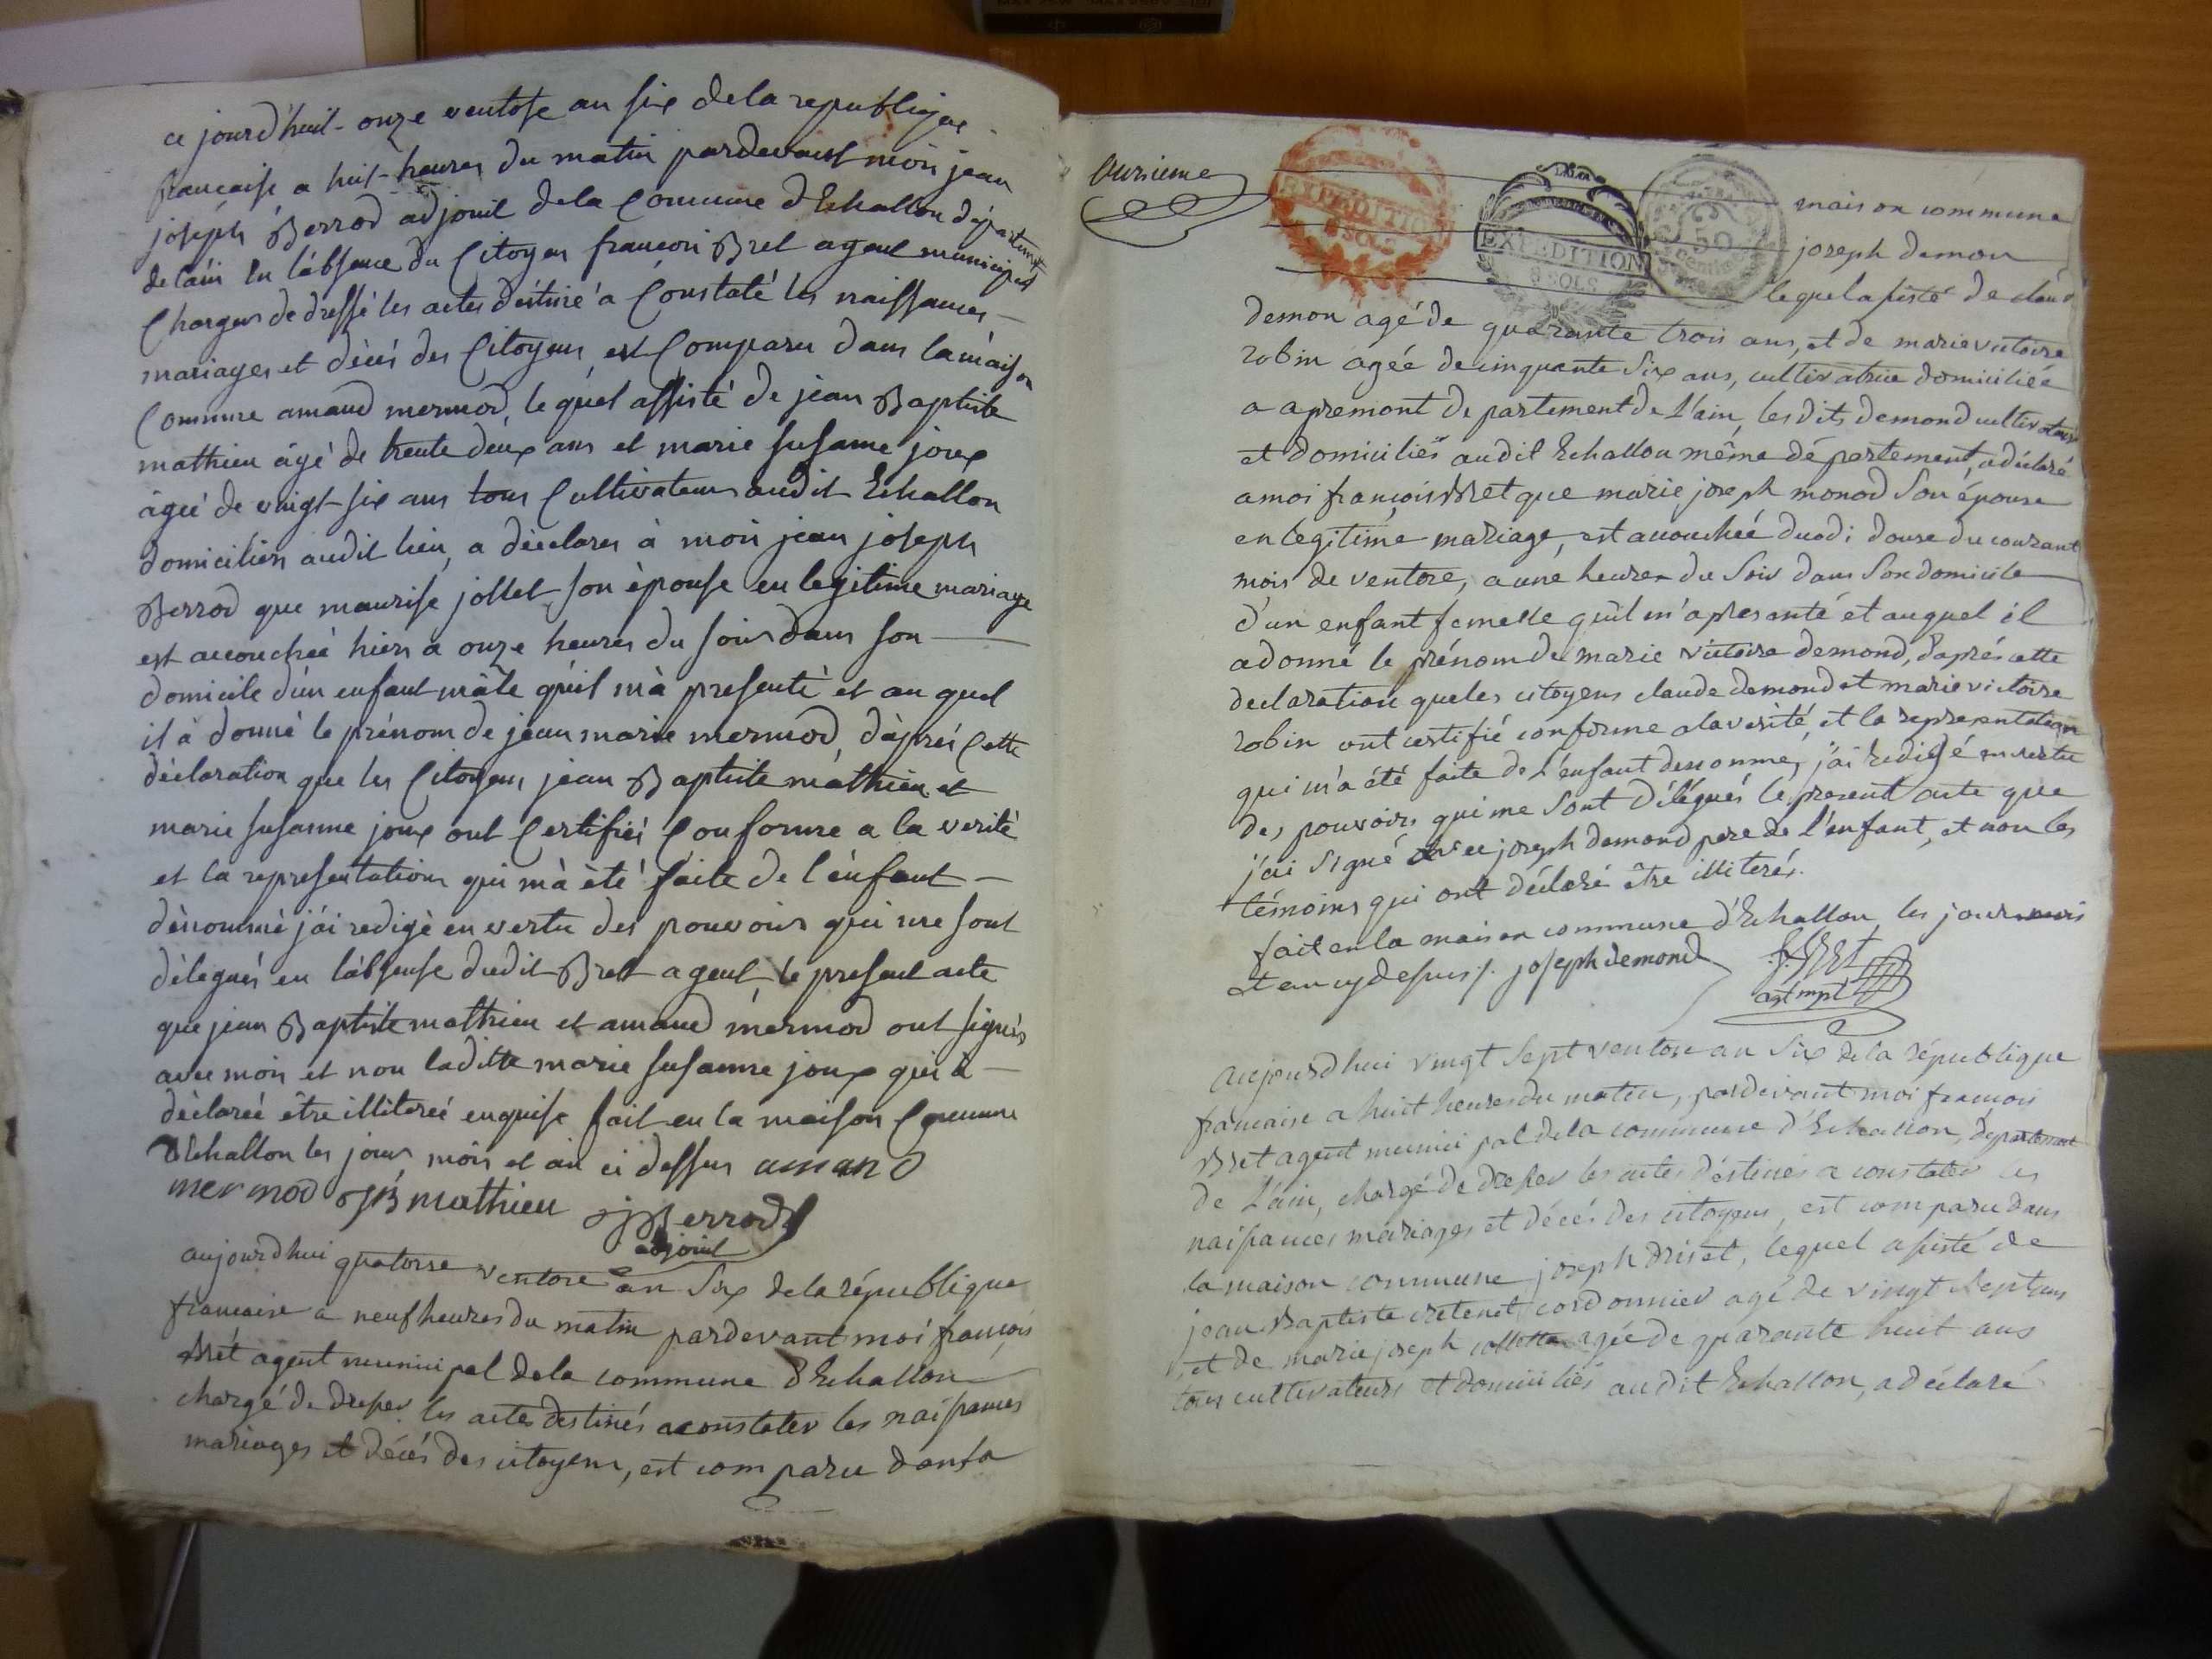 ce jourd'huil - onze ventose an six de la republique
francaise a huit heures du matin pardevant moi jean
joseph Berrod adjouil de la Comune d'Echallon departement
de lain en l'absence du Citoyen francois Bret agent municipal
Charger de dressé les actes destiné a Constaté les naissances
mariages et décés des Citoyens est Comparu dans la maison
Comune amand mermod, le quel assisté de jean Baptiste
mathieu âgé de trente deux ans et marie susanne joux
âgée de vingt six ans tous Cultivateurs audit Echallon
domiciliers audit lieu, a déclarer à moi jean joseph
Berrod que maurise jollet son épouse en legitime mariage
est accouchée hiers a onze heures du soir dans son
domicile d'un enfant mâle quil m'à presenté et au quel
il à donné le prénom de jean marie mermod, d'après Cette
déclaration que les Citoyens jean Baptiste mathieu et
marie susanne joux ont Certifiés Conforme a la verité
et la representation qui m'à été faite de l'enfant
dénommé j'ai redigé en vertu des pouvoirs qui me sont
délegués en l'absense dudit Bret agent, le present acte
que jean Baptiste mathieu et amand mermod ont signés
avec moi et non laditte marie susanne joux qui à
déclareé être illitereé enquise fait en la maison Comune
d'Echallon les jour, mois et an ci dessus aman d
mermod J B mathieu J J Berrod
adjouil
aujourdhui quatorse ventose an six de la république
francaise a neuf heures du matin pardevant moi francois
Bret agent municipal de la commune d'Echallon
chargé de dresser les actes destinés a constater les naissances
mariages et décés des citoyens, est comparu dans la
Ounsieme
EXPEDITION
8 SOLS
EXPEDITION
8 SOLS
50
centimes
maison commune
joseph demon
lequel assisté de claud
demon agé de quarante trois ans, et de marie victoire
robin agée de cinquante six ans, cultivatrice domiciliée
a apremont departement de l'ain, les dits demond cultivateurs
et domiciliés audit Echallon même département, a déclaré
a moi françois Bret que marie joseph monod son épouse
en legitime mariage, est accouchée duodi douse du courant
mois de ventose, a une heure du soir dans son domicile
d'un enfant femelle qu'il m'a presanté et auquel il
a donné le prénom de marie victoire demond, d'après cette
declaration que les citoyens claude demond et marie victoire
robin ont certifié conforme a la verité, et la representation
qui m'a été faite de l'enfant denommé, j'ai redigé en vertu
des pouvoirs qui me sont délégués le present acte que
j'ai signé avec joseph demond pere de l'enfant, et non les
témoins qui ont déclaré être illiterés.
fait en la maison commune d'Echallon, les jour mois
et an cy dessus /. joseph demond F. BRET
agt mpl
aujourdhui vingt sept ventose an six de la république
francaise a huit heures du matin, pardevant moi francois
Bret agent municipal de la commune d'Echallon, departement
de l'ain, chargé de dresser les actes déstinés a constater les
naissances mariages et décés des citoyens, est comparu dans
la maison commune joseph Driset, lequel assisté de
jean Baptiste cretenet cordonnier agé de vingt sept ans
et de marie joseph collette agée de quarante huit ans
tous cultivateurs et domiciliés audit Echallon, a déclaré